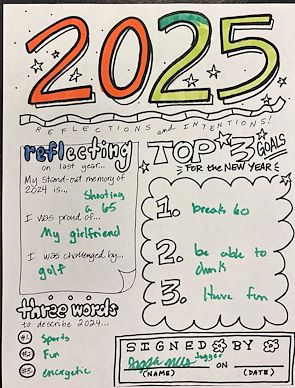 2025
REFLECTIONS and INTENTIONS!
reflecting
on last year...
My stand-out memory of
2024 is...
Shooting
a 65
I was proud of...
My girlfriend
I was challenged by...
golf
three words
to describe 2024...
#1 Sports
#2 Fun
#3 energetic
TOP 3 GOALS
FOR the NEW YEAR
1. break 60
2. be able to
dunk
3. Have fun
SIGNED BY
Jagger
ON
(NAME) (DATE)